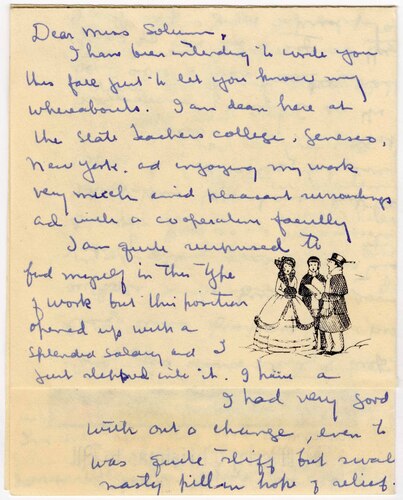 Dear Miss Solum,
I have been intending to write you
this fall just to let you know my
whereabouts. I am dean here at
the State Teachers college, Geneseo,
New York. ad enjoying my work
very much amid pleasant surroundings
ad with a cooperative faculty
I am quite surprised to
find myself in this type
of work but this position
opened up with a
splendid salary ad I
just stepped into it. I have a
I had very good
with out a change, even to
was quite stiff but swal
nasty pill in hope of relief.